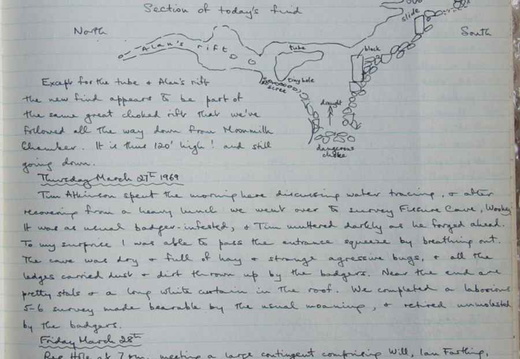 Section of today's find
North
South
slide
Alan's rift
tube
block
tiny hole
draught
dangerous
choke
Except for the tube & Alan's rift
the new find appears to be part of
the same great choked rift that we've
followed all the way down from Moonmilk
Chamber. It is thus 120' high! and still
going down.
Thursday March 27th 1969
Tim Atkinson spent the morning here discussing water tracing, & after
recovering from a heavy lunch we went over to survey Fissure Cave, Wookey.
It was as usual badger-infested, & Tim muttered darkly as he forged ahead.
To my surprise I was able to pass the entrance squeeze by breathing out.
The cave was dry & full of hay & strange agressive bugs, & all the
ledges carried dust & dirt thrown up by the badgers. Near the end are
pretty stals & a long white curtain in the roof. We completed a laborious
5-6 survey made bearable by the usual moaning, & retired unmolested
by the badgers.
Friday March 28th
Rep Hole at 7 pm, meeting a large contingent comprising Will, Ian Farthing,